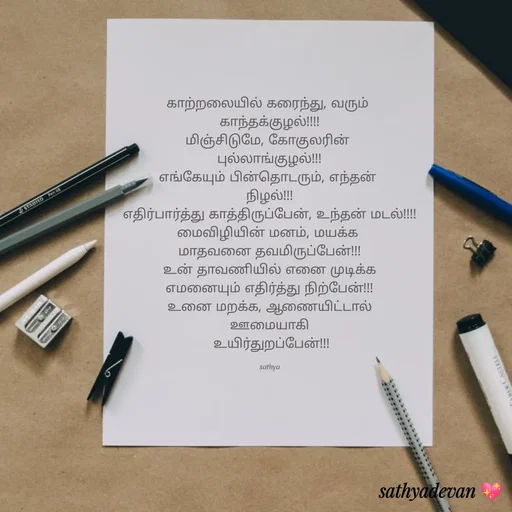 காற்றலையில் கரைந்து, வரும்
காந்தக்குழல்!!!!
மிஞ்சிடுமே, கோகுலரின்
புல்லாங்குழல்!!!
எங்கேயும் பின்தொடரும், எந்தன்
நிழல்!!!
எதிர்பார்த்து காத்திருப்பேன், உந்தன் மடல்!!!!
மைவிழியின் மனம், மயக்க
மாதவனை தவமிருப்பேன்!!!
உன் தாவணியில் எனை முடிக்க
எமனையும் எதிர்த்து நிற்பேன்!!!
உனை மறக்க, ஆணையிட்டால்
ஊமையாகி
உயிர்துறப்பேன்!!!
sathya
sathyadevan 💖